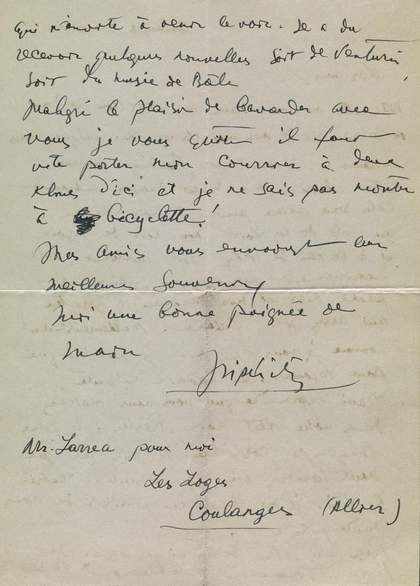 qui m'invite à venir le voir. Je a du
recevoir quelques nouvelles soit de Venturi
soit du musée de Bâle
Malgré le plaisir de bavarder avec
vous je vous quitte il faut
vite porter mon courrier à deux
klms d'ici et je ne sais pas monter
à bécyclette!
Mes amis vous envoient leur
meilleurs souvenirs
Moi une bonne poignée de
main
Lipchitz
Mr. Larrea pour moi
Les Loges
Coulanges (Allier)